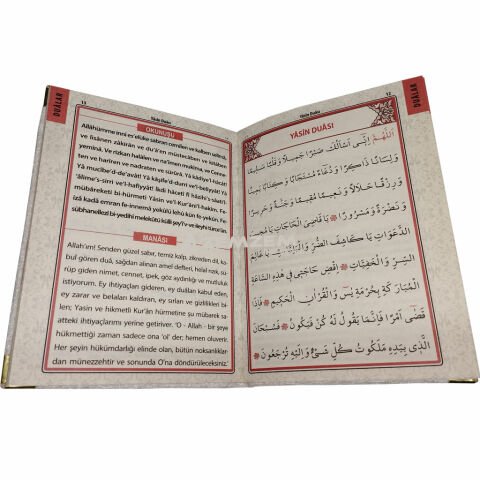 DUÂLAR
12
Yâsîn Duâsı
YÂSÎN DUÂSI
اَللّٰهُمَّ اِنِّى اَسْأَلُكَ صَبْرًا جَمِيلًا وَ قَلْبًا سَلِيمًا
وَ لِسَانًا ذَاكِرًا وَ دُعَاءً مُسْتَجَابًا وَ كِتَابًا يَمِينًا
وَ رِزْقًا حَلَالًا وَ نَعِيمًا مُقِيمًا وَ جَنَّةً وَ حَرِيرًا
وَ نَضْرَةً وَ سُرُورًا ۞ يَا قَاضِىَ الْحَاجَاتِ يَا مُجِيبَ
الدَّعَوَاتِ يَا كَاشِفَ الضُّرِّ وَ الْبَلِيَّاتِ يَا عَالِمَ
السِّرِّ وَ الْخَفِيَّاتِ ۞ اِقْضِ حَاجَتِى فِى هٰذِهِ السَّاعَةِ
الْمُبَارَكَةِ بِحُرْمَةِ يٰسٓ وَ الْقُرْاٰنِ الْحَكِيمِ ۞ فَاِذَا
قَضٰى اَمْرًا فَاِنَّمَا يَقُولُ لَهُ كُنْ فَيَكُونُ ۞ فَسُبْحَانَ
الَّذِى بِيَدِهِ مَلَكُوتُ كُلِّ شَىْءٍ وَ اِلَيْهِ تُرْجَعُونَ ۞
DUÂLAR
13
Yâsîn Duâsı
OKUNUŞU
Allâhümme innî es'elüke sabran cemîlen ve kalben selîmâ,
ve lisânen zâkirân ve du'âen müstecâben ve kitâben
yemînâ. Ve rizkan halâlen ve na'îmen mukîmâ, ve Cenne-
ten ve harîren ve nadraten ve sürûrâ. Yâ kâdiye'l-hâcât!
Yâ mucîbe'd-de'avât! Yâ kâşife'd-durri ve'l-beliyyât! Yâ
'âlime's-sirri ve'l-hafiyyât! İkdi hâcetî fî hâzihi's-sâati'l-
mübâreketi bi-hürmeti Yâsîn ve'l-Kur'âni'l-hakîm. Fe-
izâ kadâ emran fe-innemâ yekûlü lehû kün fe-yekûn. Fe-
sübhanellezî bi-yedihî melekûtü külli şey'i-v ve ileyhi türce'ûn.
MANÂSI
Allah'ım! Senden güzel sabır, temiz kalp, zikreden dil, ka-
bul gören duâ, sağdan alınan amel defteri, helal rızık, sü-
rüp giden nimet, cennet, ipek, güzellik ve mutluluk
istiyorum. Ey ihtiyaçları gideren, ey duâları kabul eden,
ey zarar ve belaları kaldıran, ey sırları ve gizlilikleri bi-
len; Yasin ve hikmetli Kur'ân hürmetine şu mübarek sa-
atteki ihtiyaçlarımı yerine getiriver. 'O - Allah - bir şeye
hükmettiği zaman sadece ona 'ol' der; hemen oluverir.
Her şeyin hükümdarlığı elinde olan, bütün noksanlıklar-
dan münezzehtir ve sonunda O'na döndürüleceksiniz.'